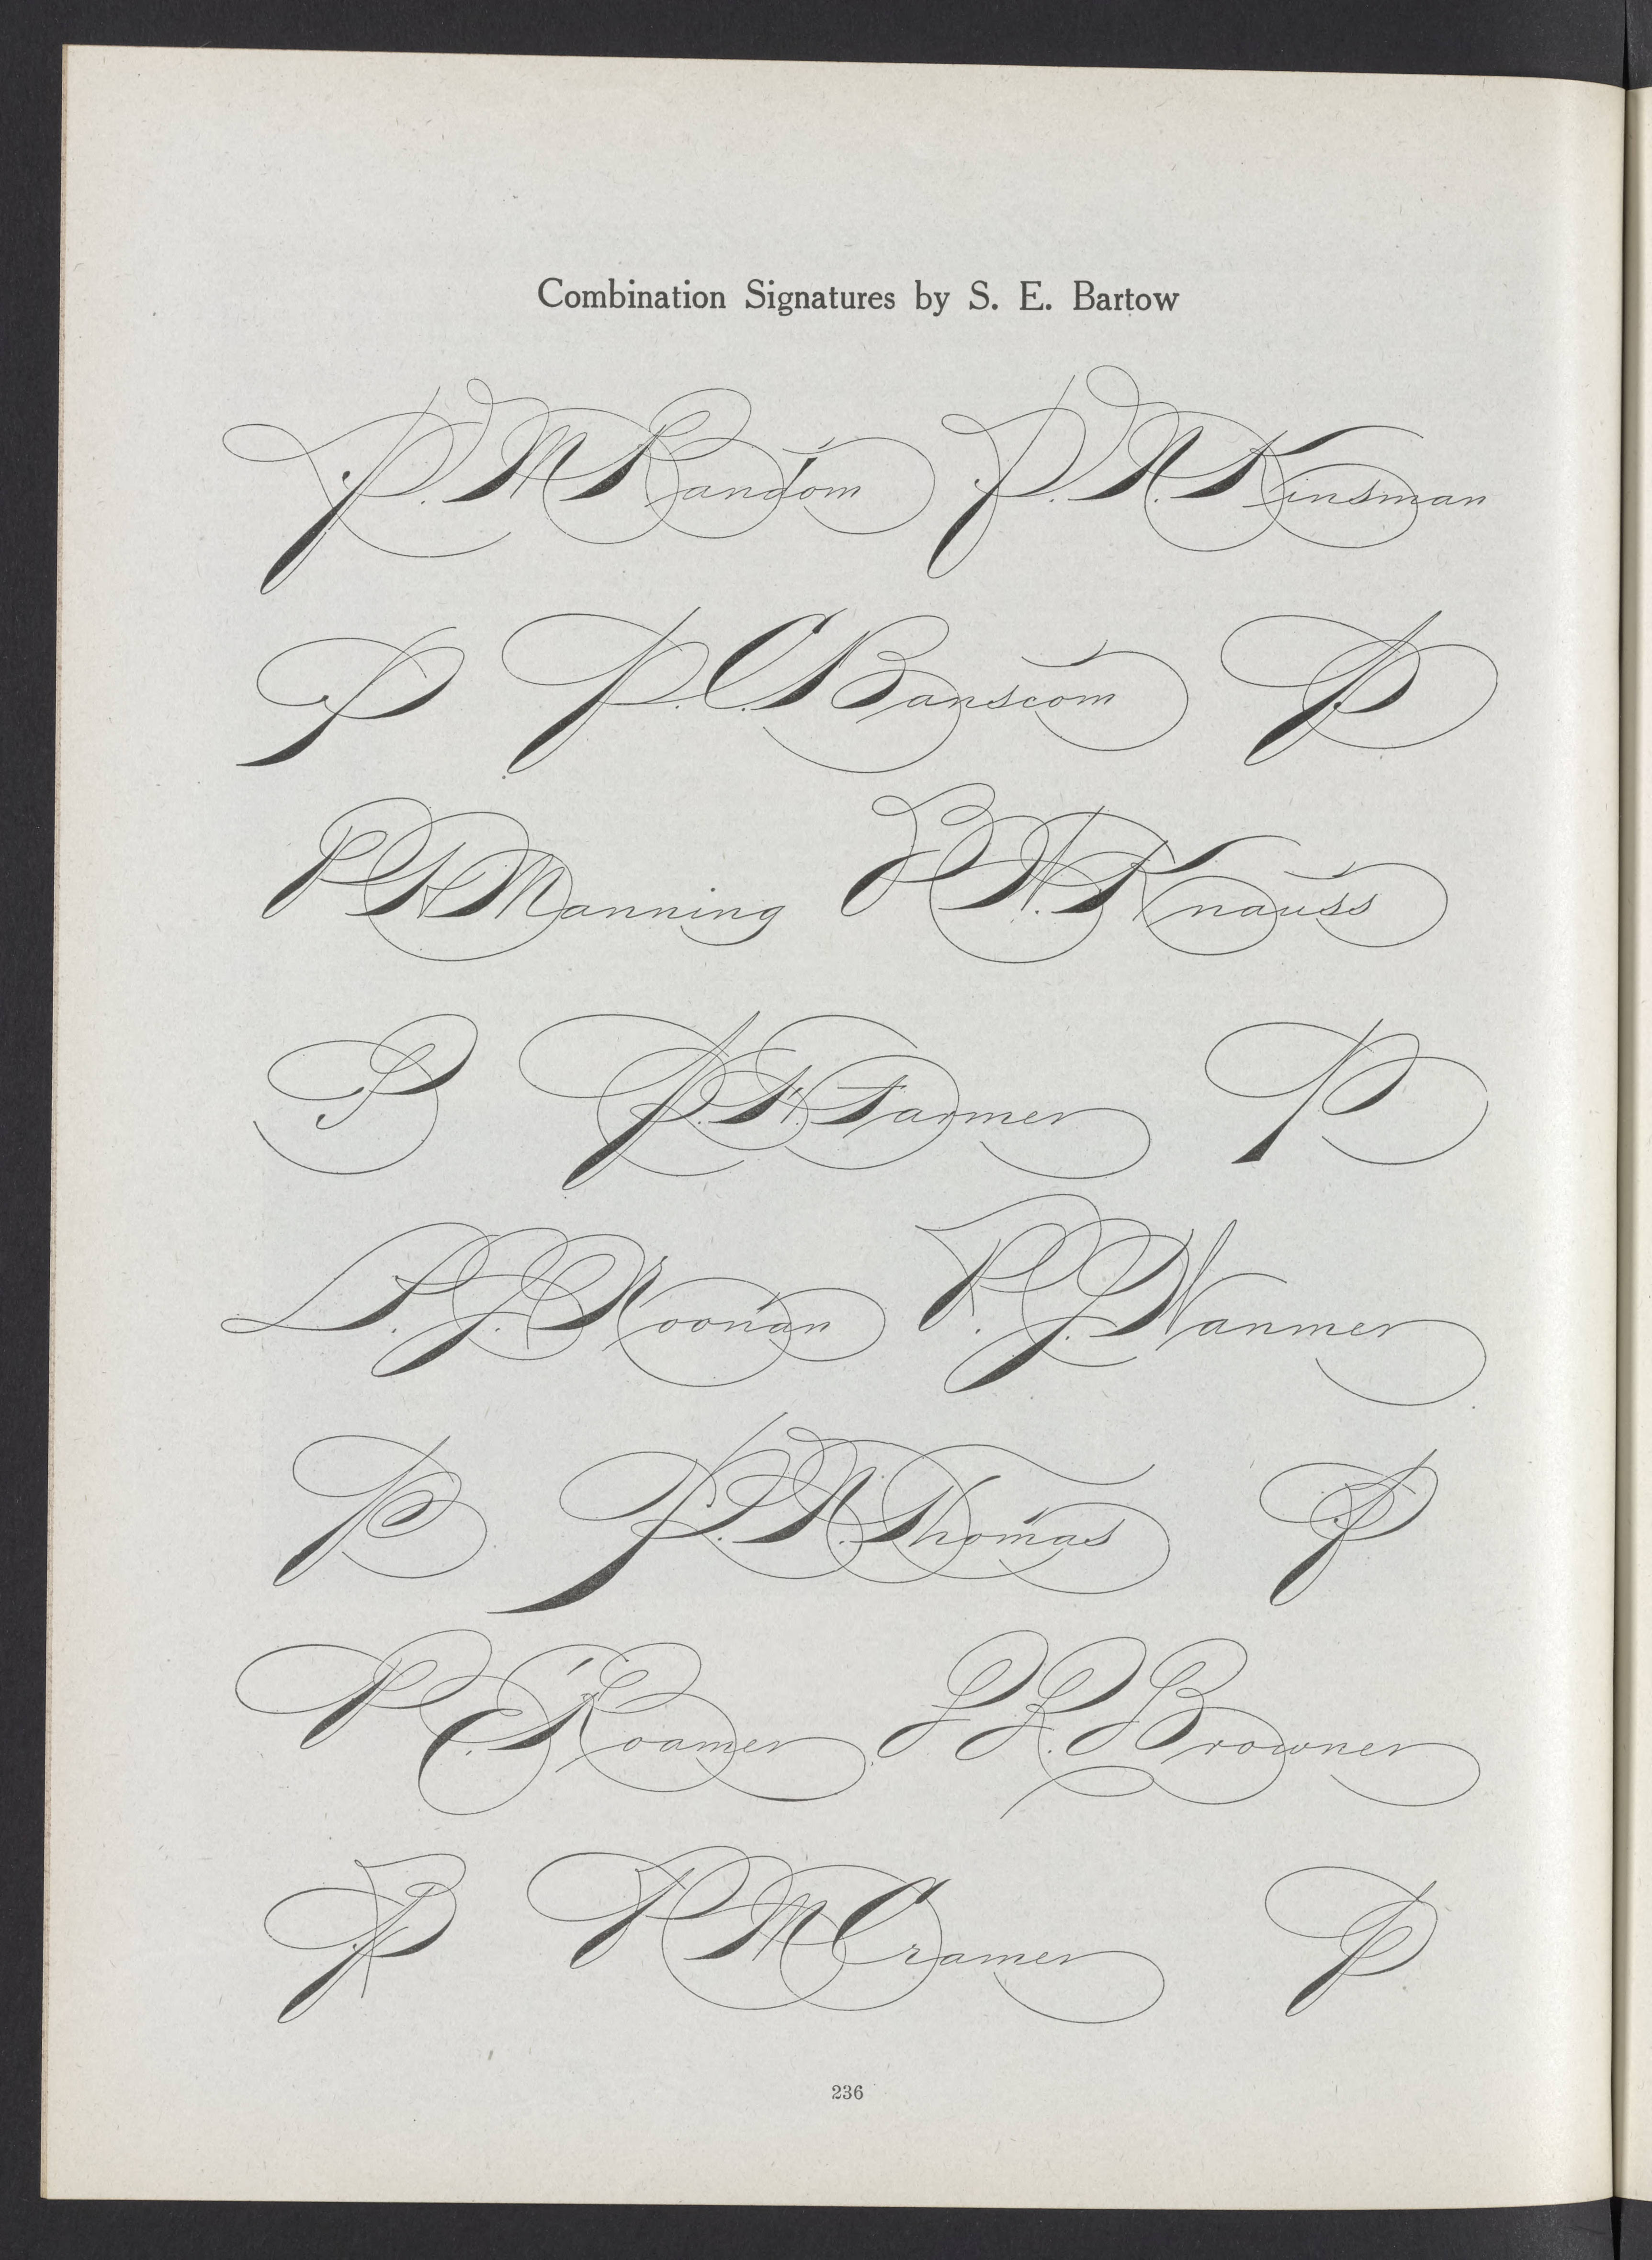 Combination Signatures by S. E. Bartow
P. M. Random P. N. Kinsman
P P. C. Banscom P
P H Manning P. W. Knauss
P P. H. Farmer P
P. J. Noonan P. J. Wanmer
P P. N. Thomas P
P C. Roamer P. P. Browner
P P M Cramer P
236